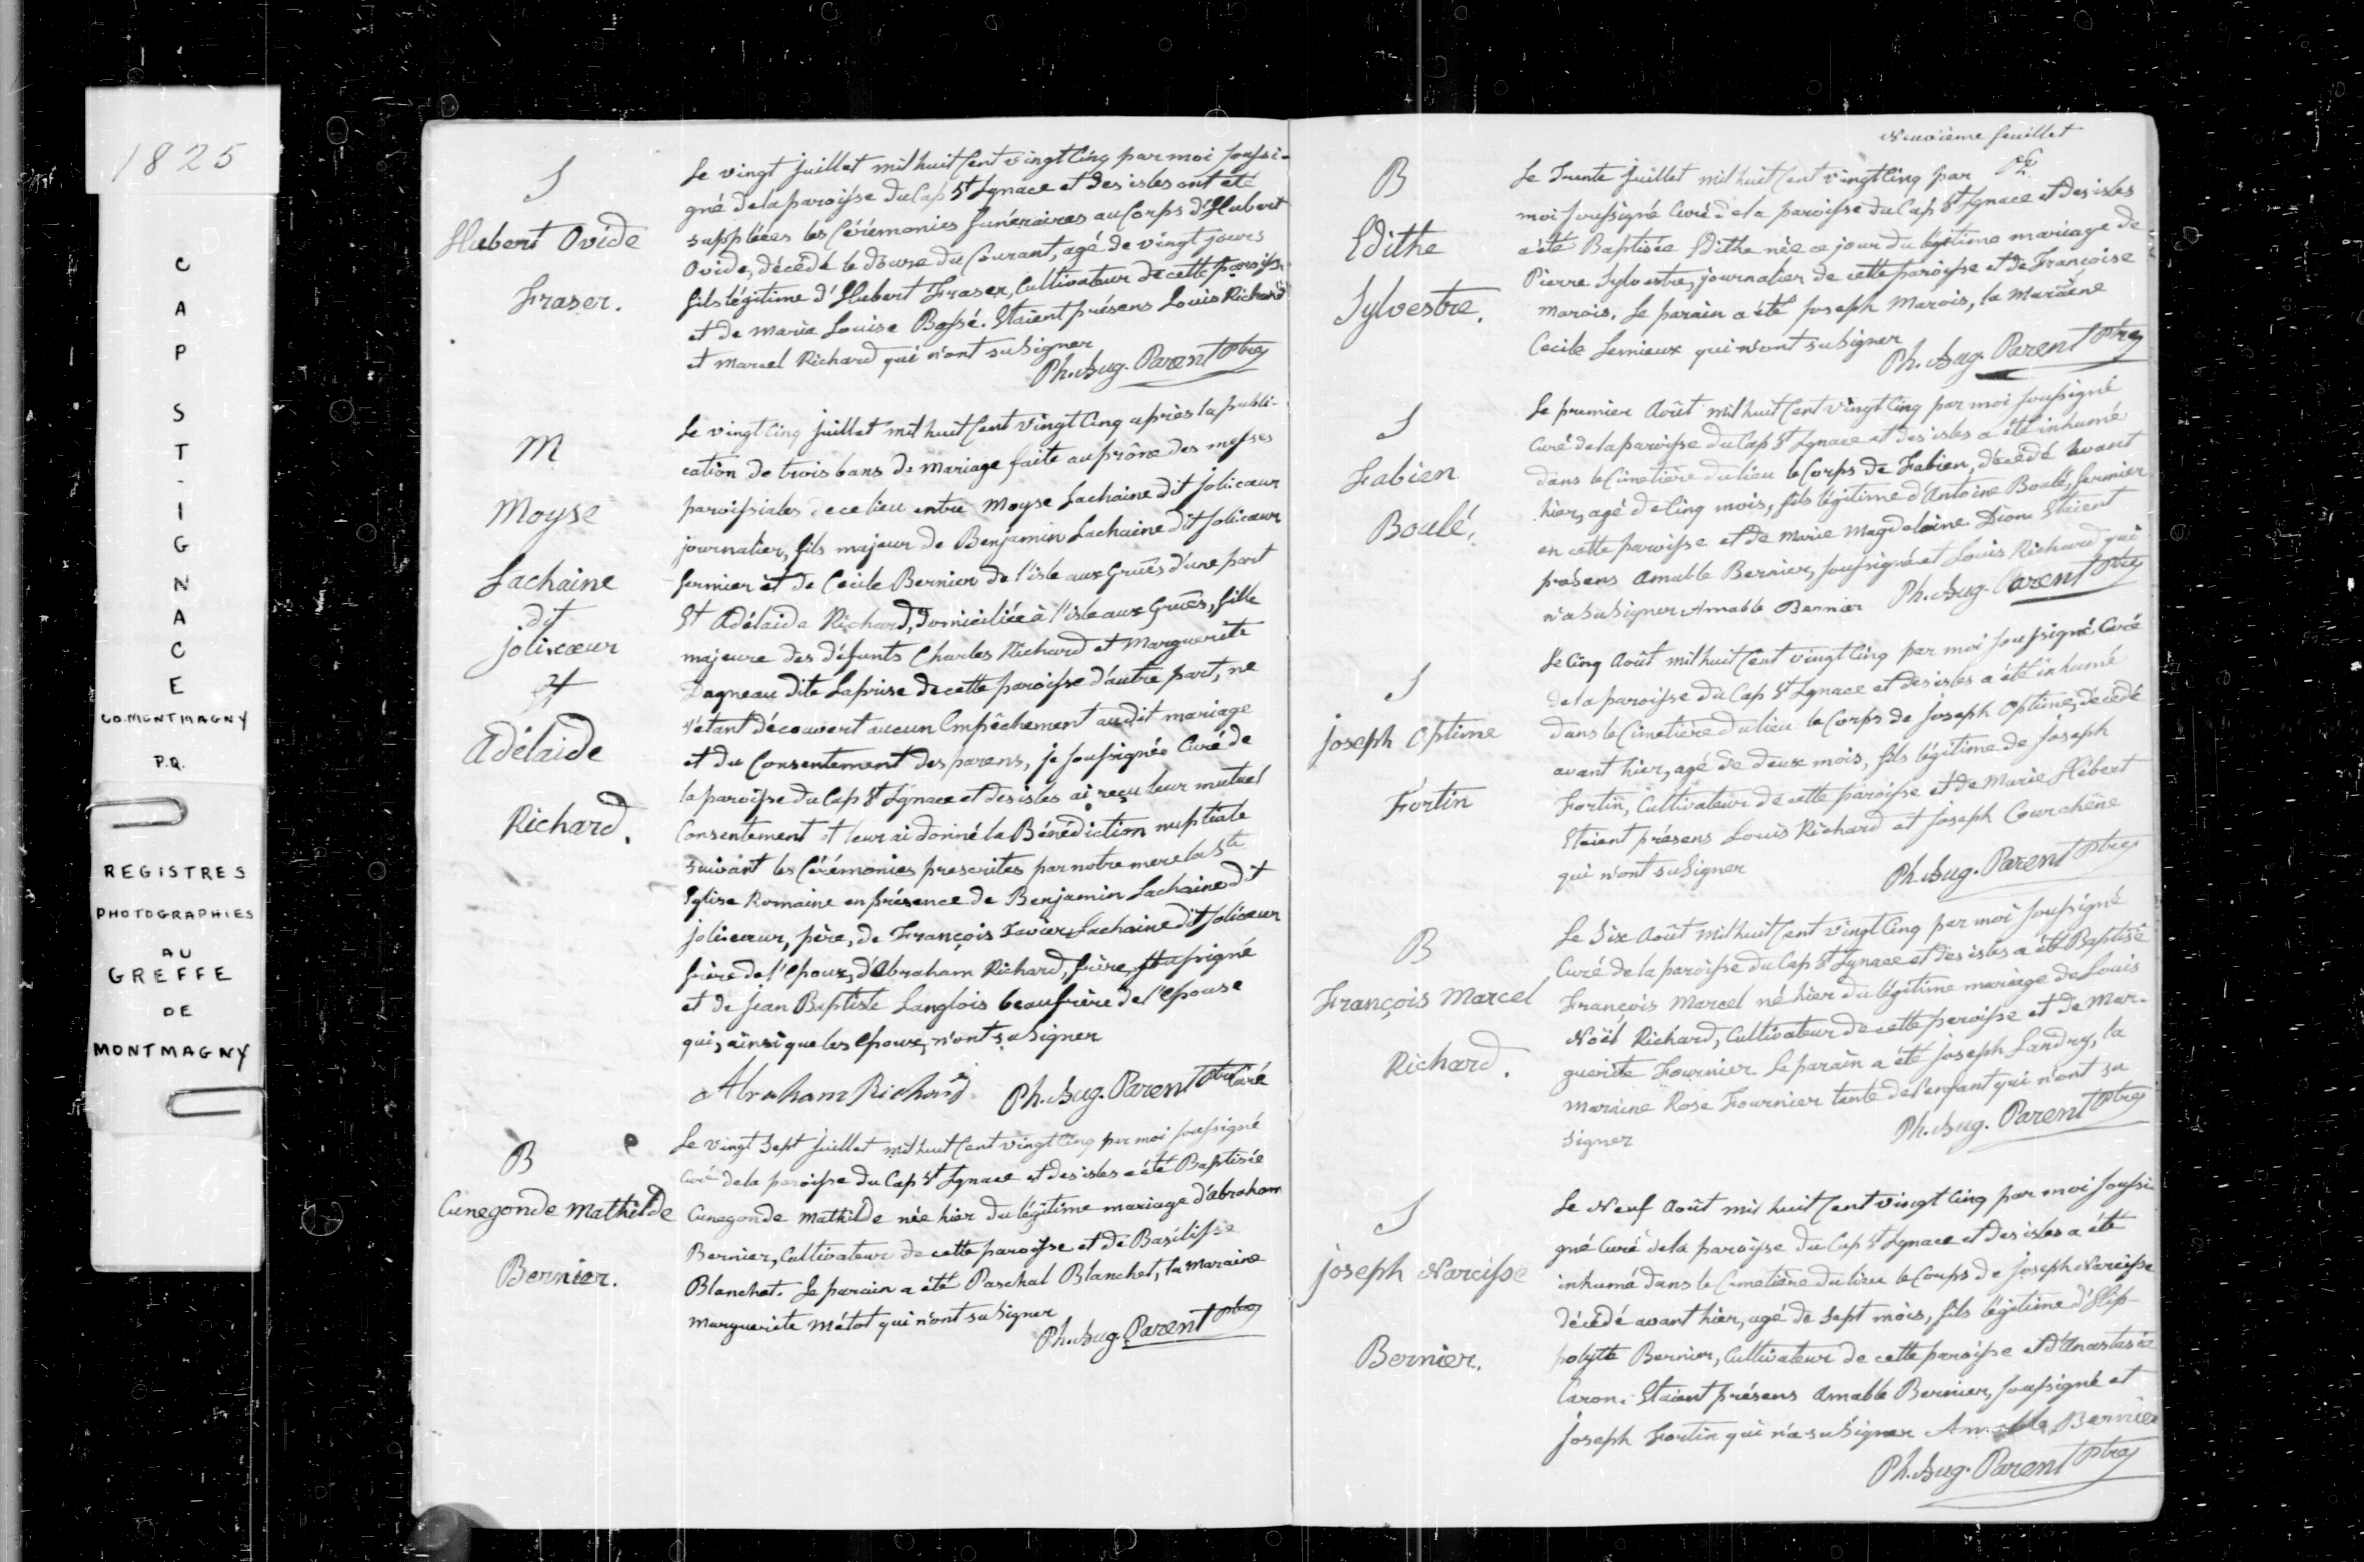 1825
CAP ST-IGNACE
CO. MONTMAGNY
P.Q.
REGISTRES
PHOTOGRAPHIES
AU
GREFFE
DE
MONTMAGNY
S
Hubert Ovide
Fraser.
Le vingt juillet mil huit Cent vingt Cinq par moi soussi-
gné de la paroisse du Cap St Ignace et des isles ont été
suppléées les Cérémonies funéraires au Corps d'Hubert
Ovide, décédé le douze du Courant, agé de vingt jours
fils légitime d'Hubert Fraser, Cultivateur de cette paroisse
et de Marie Louise Bossé. Etaient présens Louis Richard
et Marcel Richard qui n'ont su signer
Ph. Aug. Parent Ptre
M
Moyse
Lachaine
dit
jolicœur
et
Adélaide
Richard.
Le vingt Cinq juillet mil huit Cent vingt Cinq après la publi-
cation de trois bans de mariage faite au prône des messes
paroissiales de ce lieu entre Moyse Lachaine dit jolicœur
journalier, fils majeur de Benjamin Lachaine dit jolicœur
fermier et de Cécile Bernier de l'isle aux Grues d'une part
Et Adélaide Richard, domiciliée à l'isle aux Grues, fille
majeure des défunts Charles Richard et Marguerite
Dagneau dite Laprise de cette paroisse d'autre part, ne
s'étant découvert aucun Empêchement audit mariage
et du Consentement des parens, je soussigné Curé de
la paroisse du Cap St Ignace et des isles ai reçu leur mutuel
Consentement et leur ai donné la Bénédiction nuptiale
suivant les Cérémonies prescrites par notre mere la Ste
Eglise Romaine en présence de Benjamin Lachaine dit
jolicœur, père, de François Xavier Lachaine dit Jolicœur
frère de l'Epoux, d'Abraham Richard, frère, soussigné
et de Jean Baptiste Langlois beaufrère de l'epouse
qui, ainsi que les Epoux, n'ont su signer
Abraham Richard Ph. Aug. Parent Ptre Curé
B
Cunegonde Mathilde
Bernier.
Le vingt Sept juillet mil huit Cent vingt Cinq par moi soussigné
Curé de la paroisse du Cap St Ignace et des isles a été Baptisée
Cunegonde Mathilde née hier du légitime mariage d'Abraham
Bernier, Cultivateur de cette paroisse et de Basilisse
Blanchet. Le parain a été Paschal Blanchet, la Maraine
Marguerite Métot qui n'ont su signer
Ph. Aug. Parent Ptre
Neuvième feuillet
B
Edithe
Sylvestre.
Le Trente juillet mil huit Cent vingt Cinq par
moi soussigné Curé de la paroisse du Cap St Ignace et des isles
a été Baptisée Edithe née ce jour du légitime mariage de
Pierre Sylvestre, journalier de cette paroisse et de Françoise
Marois. Le parain a été Joseph Marois, la Maraine
Cecile Lemieux qui n'ont su signer
Ph. Aug. Parent Ptre
S
Fabien
Boulé.
Le premier Août mil huit Cent vingt Cinq par moi soussigné
Curé de la paroisse du Cap St Ignace et des isles a été inhumé
dans le Cimetière du lieu le Corps de Fabien, décédé avant
hier, agé de Cinq mois, fils légitime d'Antoine Boulé, fermier
en cette paroisse et de Marie Magdeleine Dion. Etaient
présens Amable Bernier, soussigné et Louis Richard qui
n'a su signer Amable Bernier Ph. Aug. Parent Ptre
S
Joseph Optime
Fortin
Le Cinq Août mil huit Cent vingt Cinq par moi soussigné Curé
de la paroisse du Cap St Ignace et des isles a été inhumé
dans le Cimetière du lieu le Corps de Joseph Optime, décédé
avant hier, agé de deux mois, fils légitime de Joseph
Fortin, Cultivateur de cette paroisse et de Marie Hébert
Etaient présens Louis Richard et Joseph Courchêne
qui n'ont su signer
Ph. Aug. Parent Ptre
B
François Marcel
Richard.
Le Six Août mil huit Cent vingt Cinq par moi soussigné
Curé de la paroisse du Cap St Ignace et des isles a été Baptisé
François Marcel né hier du légitime mariage de Louis
Noël Richard, Cultivateur de cette paroisse et de Mar-
guerite Fournier. Le parain a été Joseph Landry, la
Maraine Rose Fournier tante de l'enfant qui n'ont su
signer
Ph. Aug. Parent Ptre
S
Joseph Narcisse
Bernier.
Le Neuf Août mil huit Cent vingt Cinq par moi soussi-
gné Curé de la paroisse du Cap St Ignace et des isles a été
inhumé dans le Cimetière du lieu le Corps de Joseph Narcisse
décédé avant hier, agé de Sept mois, fils légitime d'Hip-
polyte Bernier, Cultivateur de cette paroisse et d'Anastasie
Caron. Etaient présens Amable Bernier, soussigné et
Joseph Fortin qui n'a su signer Amable Bernier
Ph. Aug. Parent Ptre